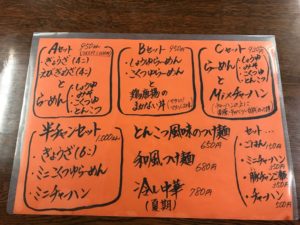 Aセット 950円
ぎょうざ(4コ)
えびぎょうざ(4コ)
と
らーめん
・しょうゆ
・みそ
・こくつゆ
・とんこつ
Bセット 950円
・しょうゆらーめん
・こくつゆらーめん
と
鶏の唐揚の
まかない丼
Cセット 950円
らーめん
・しょうゆ
・みそ
・こくつゆ
・とんこつ
と
Mixチャーハン
半チャンセット
1,000円
・ぎょうざ(6コ)
・ミニこくつゆらーめん
・ミニチャーハン
とんこつ風味のつけ麺
650円
和風つけ麺
680円
冷し中華 780円
(夏期)
セット...
・ごはん 150円
・ミニチャーハン 350円
・豚チャン丼 350円
・チャーハン 500円